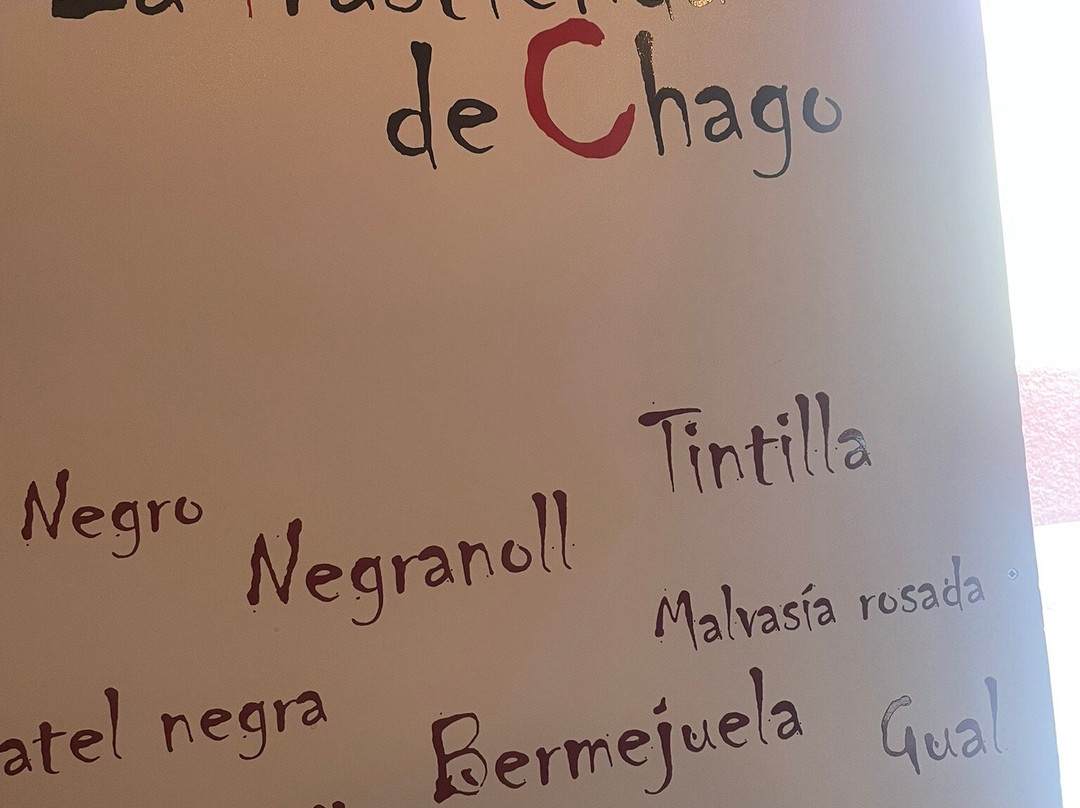 La Trastienda
de Chago
Tintilla
Negro
Negranoll
Malvasía rosada
atel negra
Bermejuela
Gual